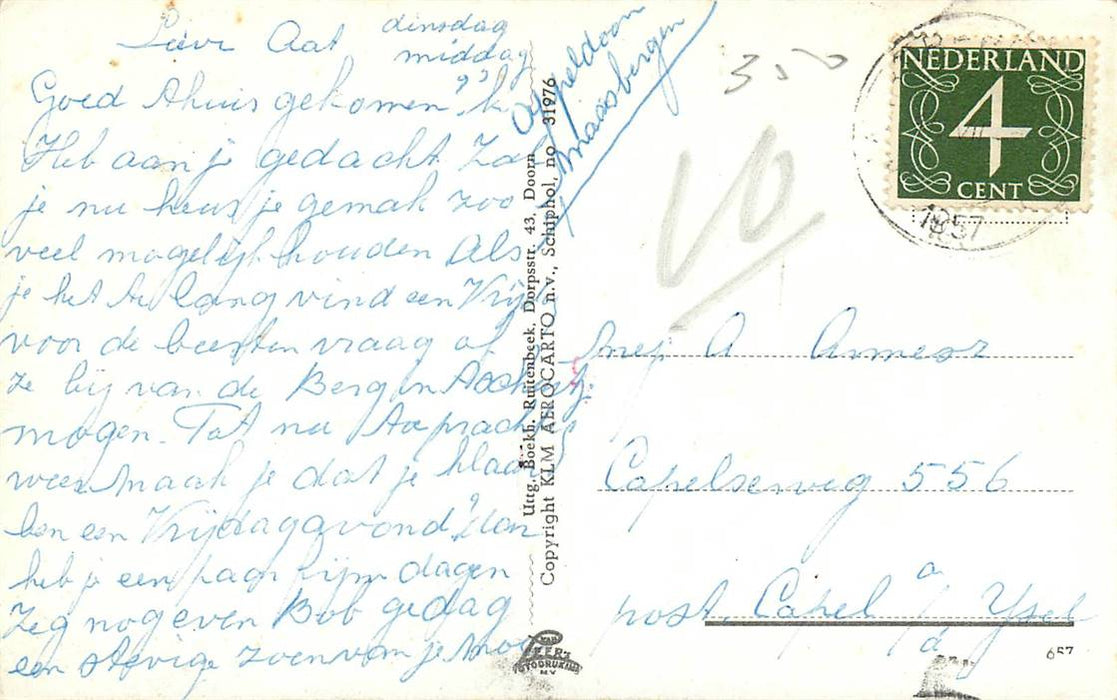 Lieve Aat dinsdag
middag
Goed thuis gekomen 'k
Heb aan je gedacht zal
je nu heus je gemak zoo
veel mogelijk houden Als
je het te lang vind een Vrijd
voor de beesten vraag of
ze bij van de Berg in
mogen. Tot nu
weer maak je dat je klaar
ben een Vrijdagavond dan
heb je een paar fijne dagen
Zeg nog even Bob gedag
een stevige zoen van je
Appeldoorn
Maasbergen
Uitg. Boekh. Ruitenbeek, Dorpsstr. 43, Doorn
Copyright KLM AEROCARTO n.v., Schiphol, no 31976
350
10
NEDERLAND
4
CENT
1957
mej A
Capelseweg 556
post Capel a/d Ysel
657
VAN LEER'S
FOTODRUKIND.
N.V.